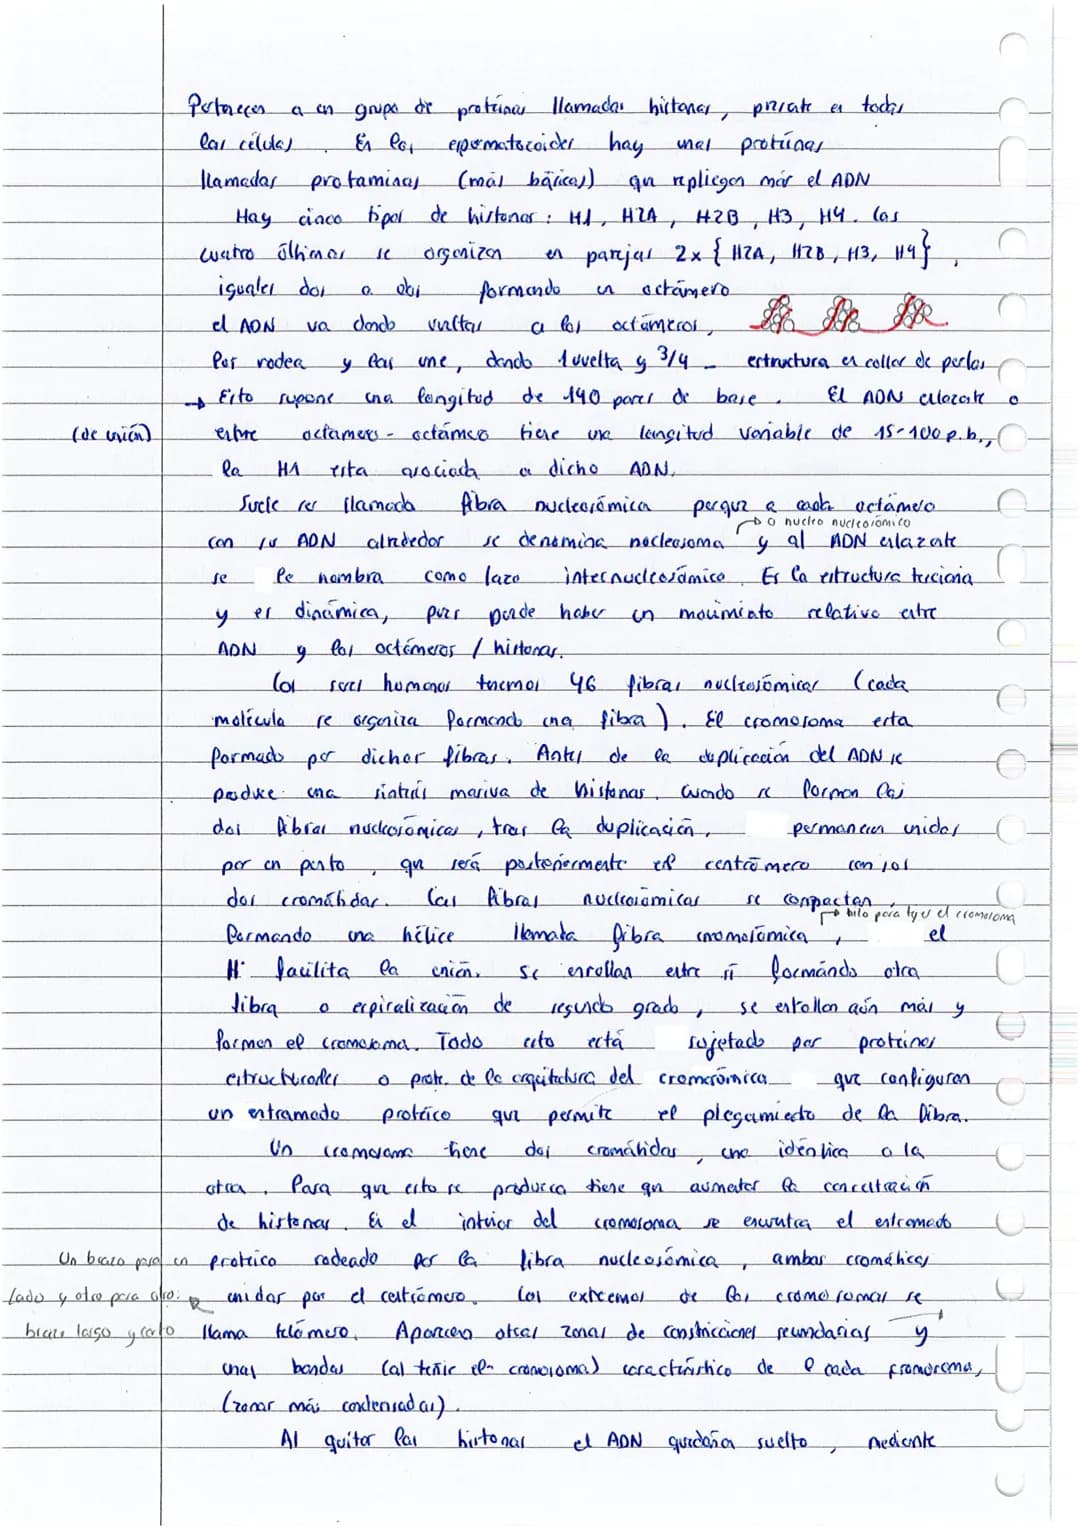 Pertenecen a un grupo de proteínas llamadas histonas, presente en todas
las células. En los espermatozoides hay unas proteínas
llamadas protaminas (más básicas) que repliegan más el ADN
Hay cinco tipos de histonas: H1, H2A, H2B, H3, H4. Las
cuatro últimas se organizan en parejas 2x {H2A, H2B, H3, H4},
iguales dos a dos formando un octámero
el ADN va dando vueltas a los octámeros,
los rodea y los une, dando 1 vuelta y 3/4 - estructura en collar de perlas
→ Esto supone una longitud de 140 pares de base. El ADN enlazante o
(de unión) entre octámero - octámero tiene una longitud variable de 15-100 p.b.,
la H1 esta asociada a dicho ADN.
Suele ser llamada fibra nucleosómica porque a cada octámero
→ o nucleo nucleosómico
con su ADN alrededor se denomina nucleosoma y al ADN enlazante
se le nombra como lazo internucleosómico. Es la estructura terciaria
y es dinámica, pues puede haber un movimiento relativo entre
ADN y los octámeros / histonas.
Los seres humanos tenemos 46 fibras nucleosómicas (cada
molécula se organiza formando una fibra). El cromosoma esta
formado por dichas fibras. Antes de la duplicación del ADN se
produce una síntesis masiva de histonas. Cuando se forman las
dos fibras nucleosómicas, tras la duplicación, permanecen unidas
por un punto, que será posteriormente el centrómero con sus
dos cromátidas. Las fibras nucleosómicas se compactan,
→ hilo para tejer el cromosoma
formando una hélice llamada fibra cromosómica, el
H1 facilita la unión. Se enrollan entre sí formando otra
fibra o espiralización de segundo grado, se enrollan aún más y
forman el cromosoma. Todo esto está sujetado por proteínas
estructurales o prote. de la arquitectura del cromosómica que configuran
un entramado protéico que permite el plegamiento de la fibra.
Un cromosoma tiene dos cromátidas, una idéntica a la
otra. Para que esto se produzca tiene que aumentar la concentración
de histonas. En el interior del cromosoma se encuentra el entramado
Un brazo para un protéico rodeado por la fibra nucleosómica, ambas cromáticas
lado y otro para otro. unidas por el centrómero. Los extremos de los cromosomas se
brazo largo y corto llama telómero. Aparecen otras zonas de constricciones secundarias y
unas bandas (al teñir el cromosoma) característico de cada cromosoma,
(zonas más condensadas).
Al quitar las histonas el ADN quedaría suelto, mediante